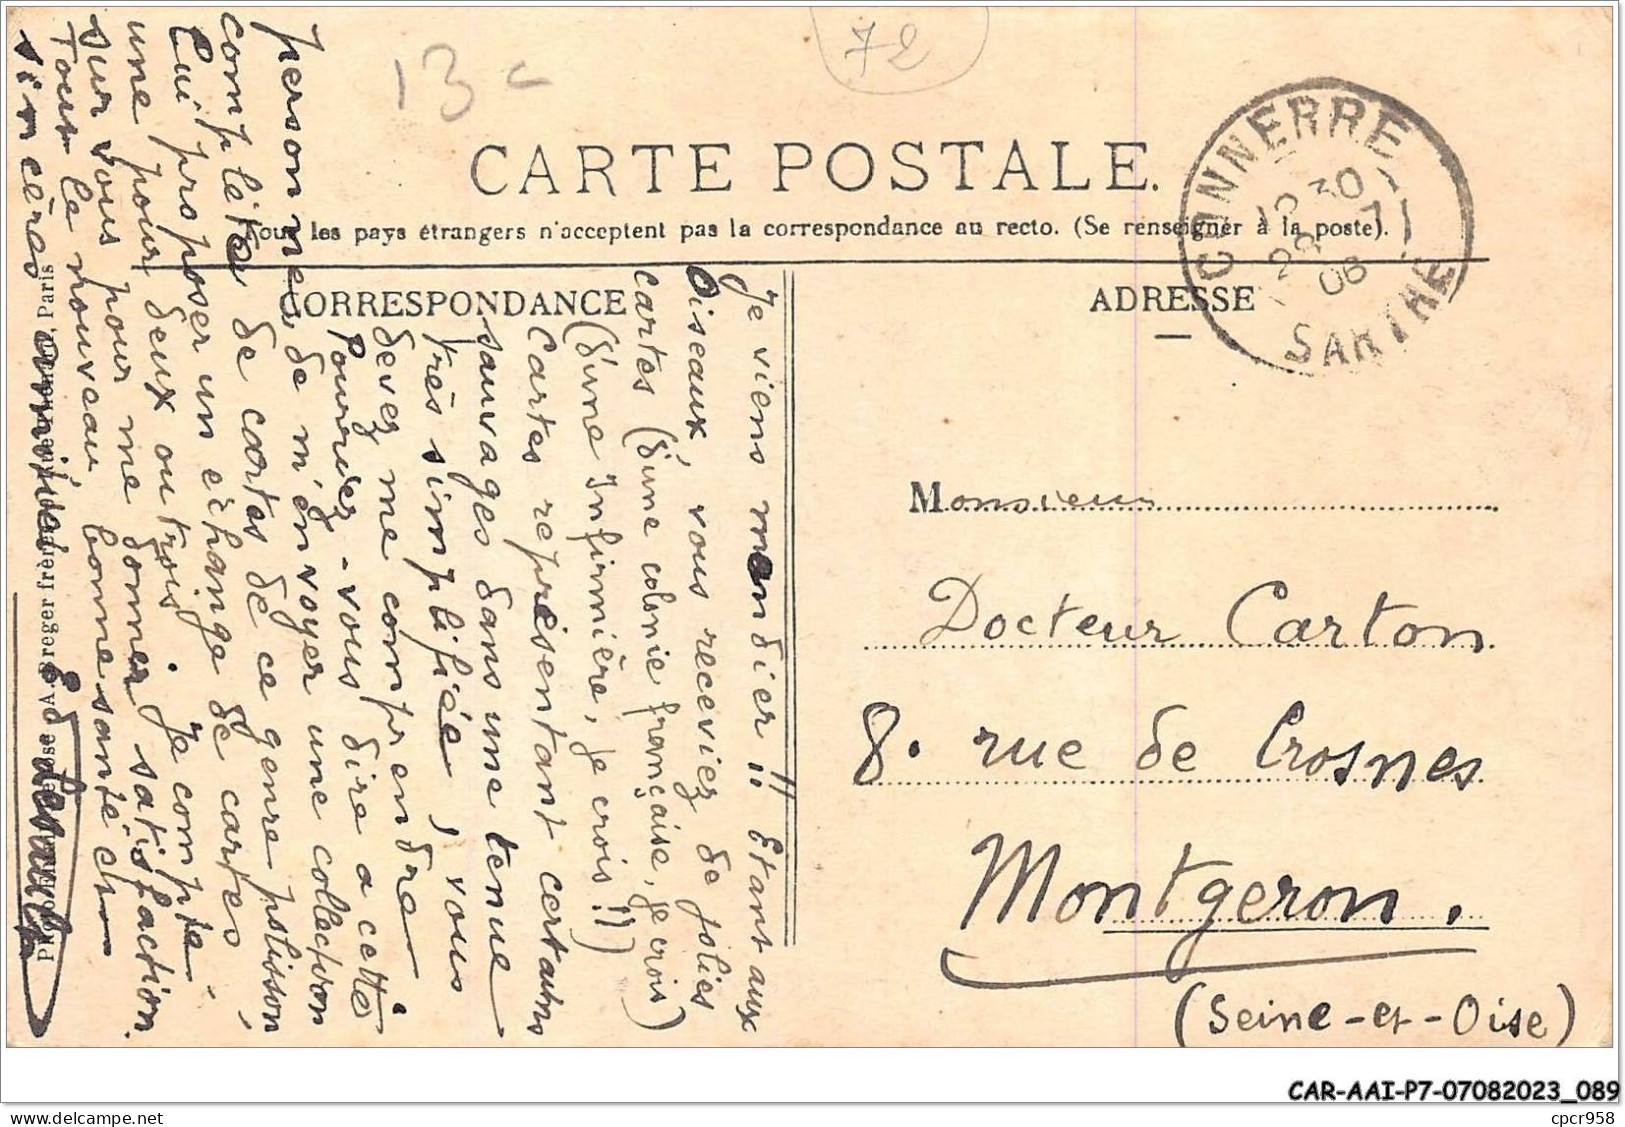 13 c
72
CARTE POSTALE.
Tous les pays étrangers n'acceptent pas la correspondance au recto. (Se renseigner à la poste).
CORRESPONDANCE
ADRESSE
CONNERRE
30
28
08
SARTHE
Je viens mendier !! Etant aux
Oiseaux, vous receviez de jolies
cartes (d'une colonie française, je crois)
(d'une Infirmière, je crois !!)
Cartes représentant certains
sauvages dans une tenue
très simplifiée, vous
devez me comprendre.
Pourriez-vous dire a cette
personne de m'en voyer une collection
complète de cartes de ce genre polisson,
Lui proposer un échange de cartes,
une pour deux ou trois. Je compte
sur vous pour me donner satisfaction.
Tout le nouveau bonne santé et
sincères amitiés
E. Desault
Phototypie A. Breger frères, Paris
Monsieur
Docteur Carton
8. rue de Crosnes
Montgeron.
(Seine-et-Oise)
CAR-AAI-P7-07082023_089
cpcr958